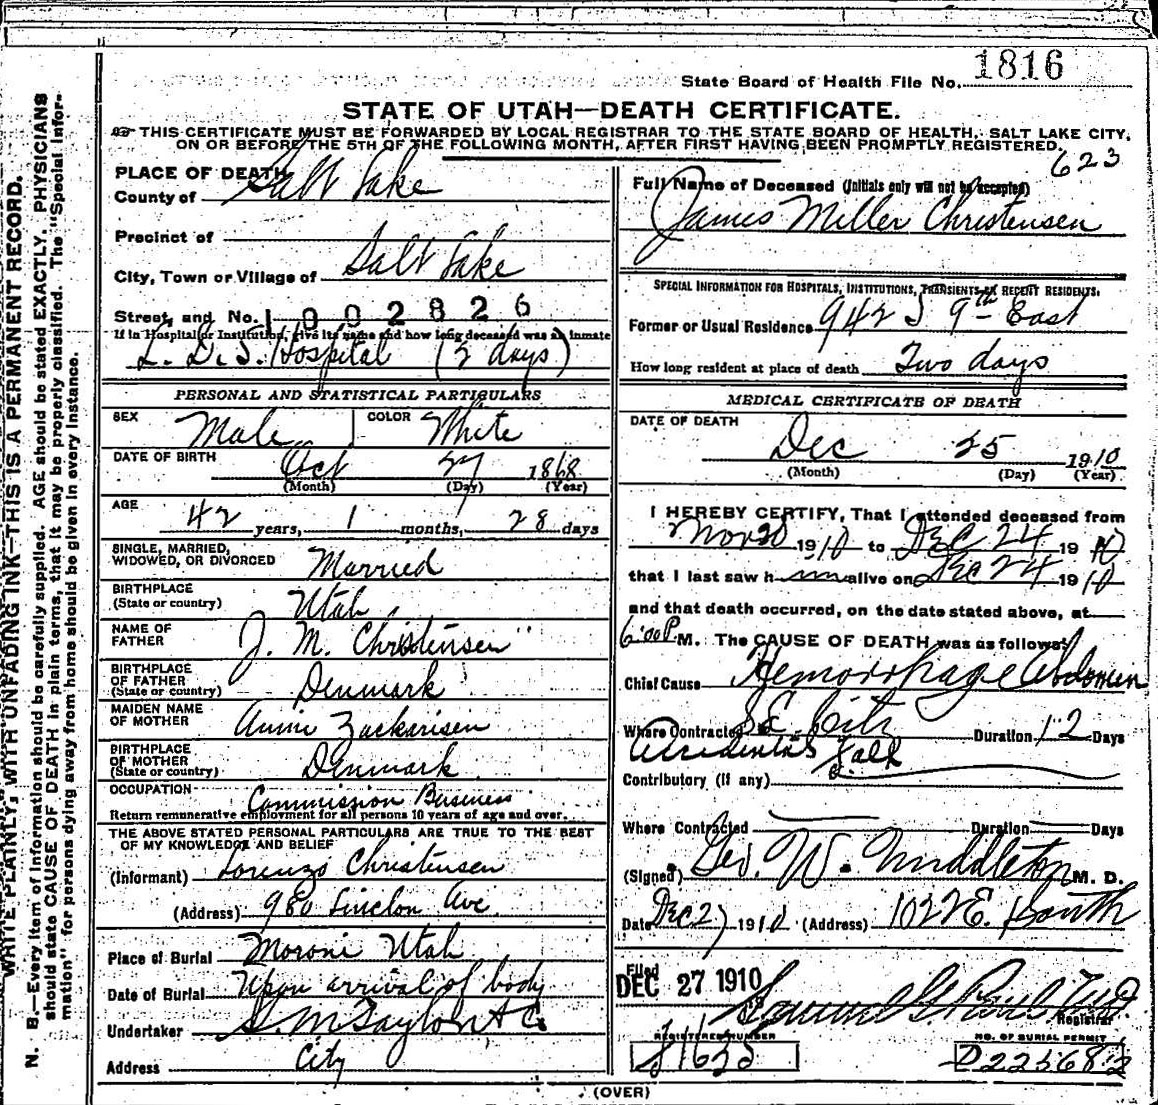 1816
State Board of Health File No.
STATE OF UTAH—DEATH CERTIFICATE.
THIS CERTIFICATE MUST BE FORWARDED BY LOCAL REGISTRAR TO THE STATE BOARD OF HEALTH, SALT LAKE CITY,
ON OR BEFORE THE 5TH OF THE FOLLOWING MONTH, AFTER FIRST HAVING BEEN PROMPTLY REGISTERED.
623
PLACE OF DEATH
County of Salt Lake
Precinct of
City, Town or Village of Salt Lake
Street, and No. 1002826
If in Hospital or Institution, give its name and how long deceased was an inmate
L. D. S. Hospital (2 days)
PERSONAL AND STATISTICAL PARTICULARS
SEX Male COLOR White
DATE OF BIRTH Oct 27 1868
(Month) (Day) (Year)
AGE 42 years, 1 months, 28 days
SINGLE, MARRIED,
WIDOWED, OR DIVORCED Married
BIRTHPLACE
(State or country) Utah
NAME OF
FATHER J. M. Christensen
BIRTHPLACE
OF FATHER
(State or country) Denmark
MAIDEN NAME
OF MOTHER Annie Zackarisen
BIRTHPLACE
OF MOTHER
(State or country) Denmark
OCCUPATION Commission Business
Return remunerative employment for all persons 10 years of age and over.
THE ABOVE STATED PERSONAL PARTICULARS ARE TRUE TO THE BEST
OF MY KNOWLEDGE AND BELIEF
(Informant) Lorenzo Christensen
(Address) 980 Ave.
Place of Burial Moroni Utah
Date of Burial Upon arrival of body
Undertaker S. M Taylor & Co
Address City
Full Name of Deceased (Initials only will not be accepted)
James Miller Christensen
SPECIAL INFORMATION FOR HOSPITALS, INSTITUTIONS, TRANSIENTS OR RECENT RESIDENTS.
Former or Usual Residence 942 S 9th East
How long resident at place of death Two days
MEDICAL CERTIFICATE OF DEATH
DATE OF DEATH
Dec 25 1910
(Month) (Day) (Year)
I HEREBY CERTIFY, That I attended deceased from
Nov 20 1910 to Dec 24 1910
that I last saw him alive on Dec 24 1910
and that death occurred, on the date stated above, at
6:00 P. M. The CAUSE OF DEATH was as follows:
Chief Cause Hemorrhage Abdomen
Where Contracted S L City Duration 12 Days
Accidental Fall
Contributory (if any)
Where Contracted Duration Days
(Signed) Geo. W. Middleton M. D.
Date Dec 27 1910 (Address) 1022 E. South
Filed
DEC 27 1910
Samuel G. Paul M.D.
Registrar
REGISTERED NUMBER
NO. OF BURIAL PERMIT
D 22568.2
(OVER)
WRITE PLAINLY, WITH UNFADING INK—THIS IS A PERMANENT RECORD.
N. B.—Every item of information should be carefully supplied. AGE should be stated EXACTLY. PHYSICIANS
should state CAUSE OF DEATH in plain terms, that it may be properly classified. The "Special Infor-
mation" for persons dying away from home should be given in every instance.